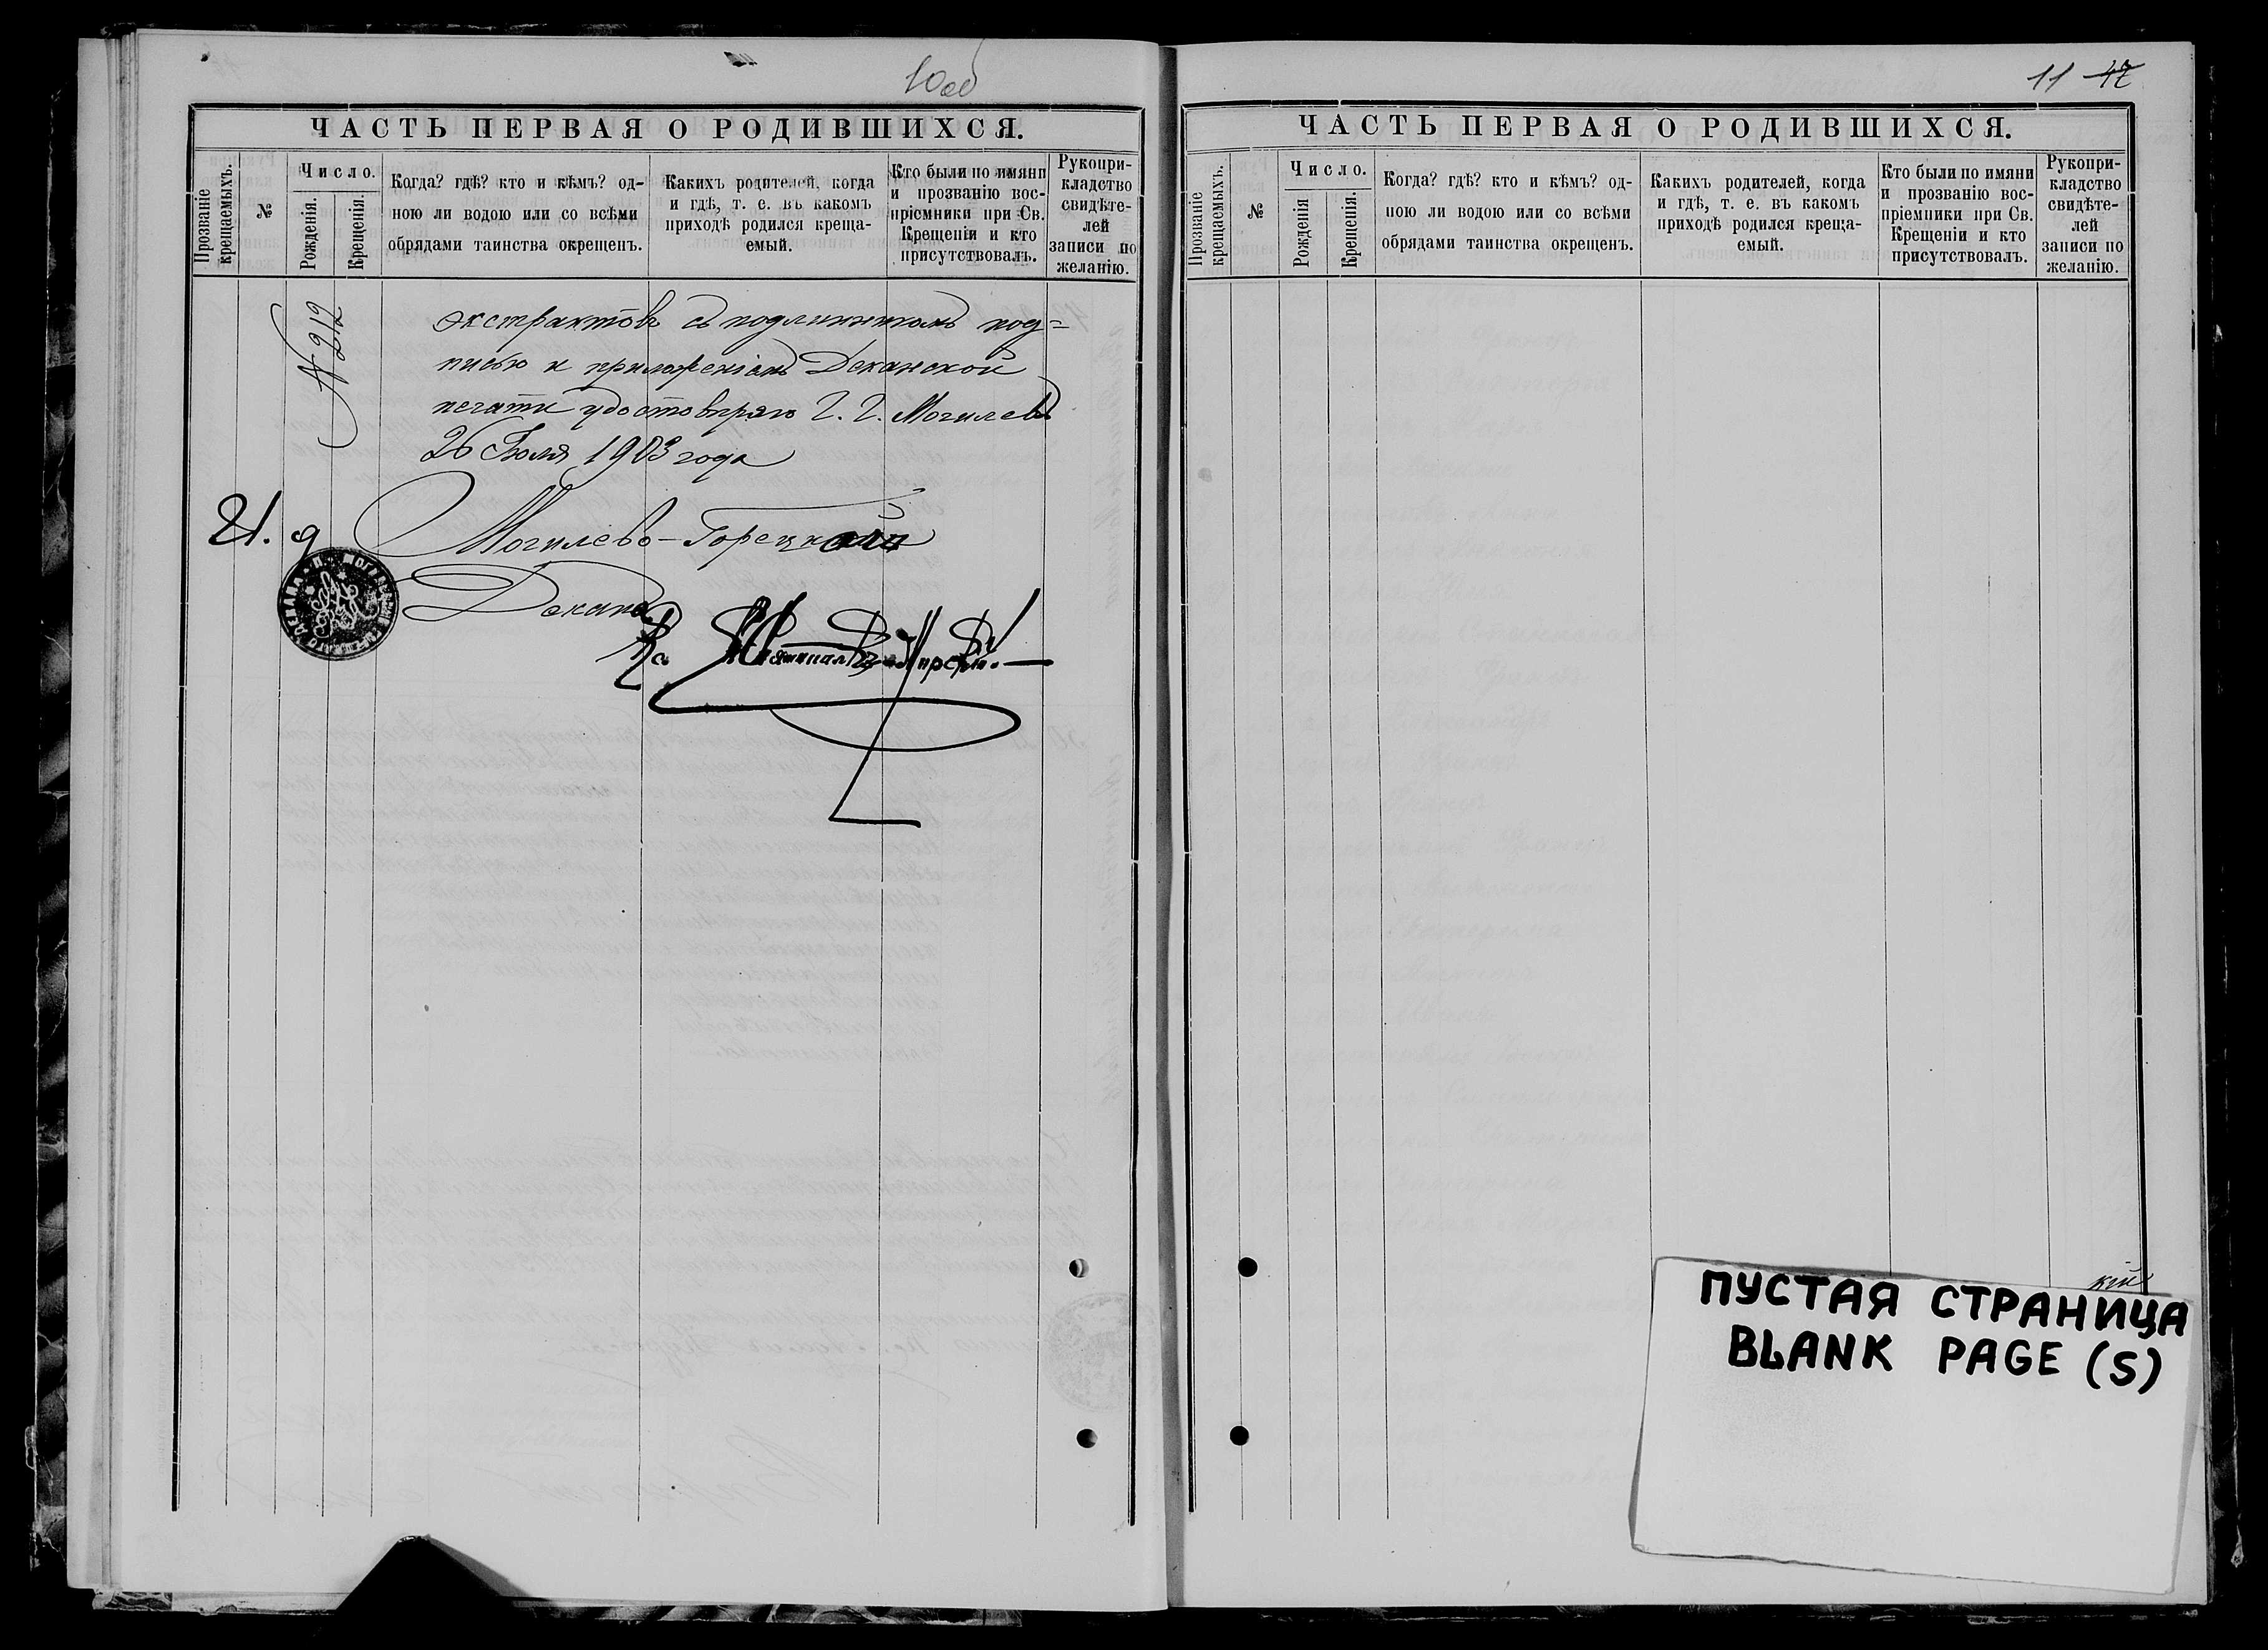 10 об
ЧАСТЬ ПЕРВАЯ О РОДИВШИХСЯ.
Прозваніе крещаемыхъ.
№
Число.
Рожденія.
Крещенія.
Когда? гдѣ? кто и кѣмъ? од-
ною ли водою или со всѣми
обрядами таинства окрещенъ.
Какихъ родителей, когда
и гдѣ, т. е. въ какомъ
приходѣ родился креща-
емый.
Кто были по имяни
и прозванію вос-
пріемники при Св.
Крещеніи и кто
присутствовалъ.
Рукопри-
кладство
свидѣте-
лей
записи по
желанію.
№ 212
экстрактовъ съ подлинникомъ под=
писью и приложеніемъ Деканской
печати удостовѣряю Г. Г. Могилевъ
26 Іюля 1903 года
И. д. Могилево-Горецкаго
Декана
Кс.
11 42
ЧАСТЬ ПЕРВАЯ О РОДИВШИХСЯ.
Прозваніе крещаемыхъ.
№
Число.
Рожденія
Крещенія.
Когда? гдѣ? кто и кѣмъ? од-
ною ли водою или со всѣми
обрядами таинства окрещенъ.
Какихъ родителей, когда
и гдѣ, т. е. въ какомъ
приходѣ родился креща-
емый.
Кто были по имяни
и прозванію вос-
пріемники при Св.
Крещеніи и кто
присутствовалъ.
Рукопри-
кладство
свидѣте-
лей
записи по
желанію.
кій
ПУСТАЯ СТРАНИЦА
BLANK PAGE (S)